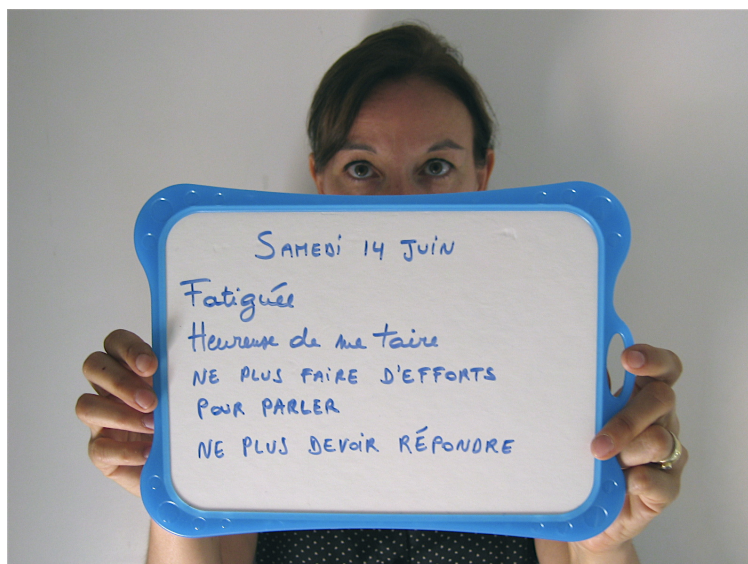 SAMEDI 14 JUIN
Fatiguée
Heureuse de me taire
NE PLUS FAIRE D'EFFORTS
POUR PARLER
NE PLUS DEVOIR RÉPONDRE